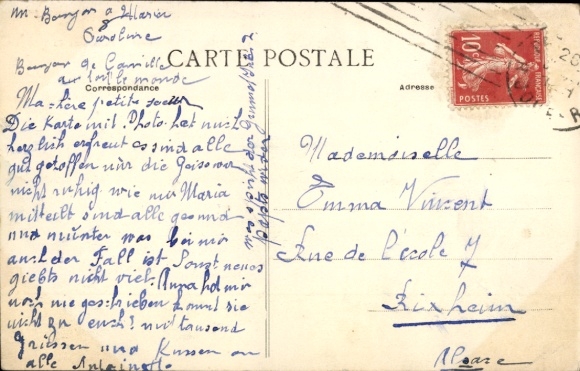 un Bonjour a Maria
Caroline
Bonjour de Camille
a tout le monde
CARTE POSTALE
Correspondance
Adresse
Ma chere petite soeur
Die Karte mit Photo hat mich
herzlich erfreut es sind alle
gut getroffen nur die
nicht ruhig wie mir Maria
mitteilt sind alle gesund
und munter was bei mir
auch der Fall ist Sonst neues
giebts nicht viel. Anna hat mir
noch nie geschrieben kommt sie
nicht zu euch? mit tausend
Grüssen und Küssen an
alle Antoinette
Mademoiselle
Emma Vincent
Rue de l'école 7
Rixheim
Alsace
10c
REPUBLIQUE FRANÇAISE
POSTES